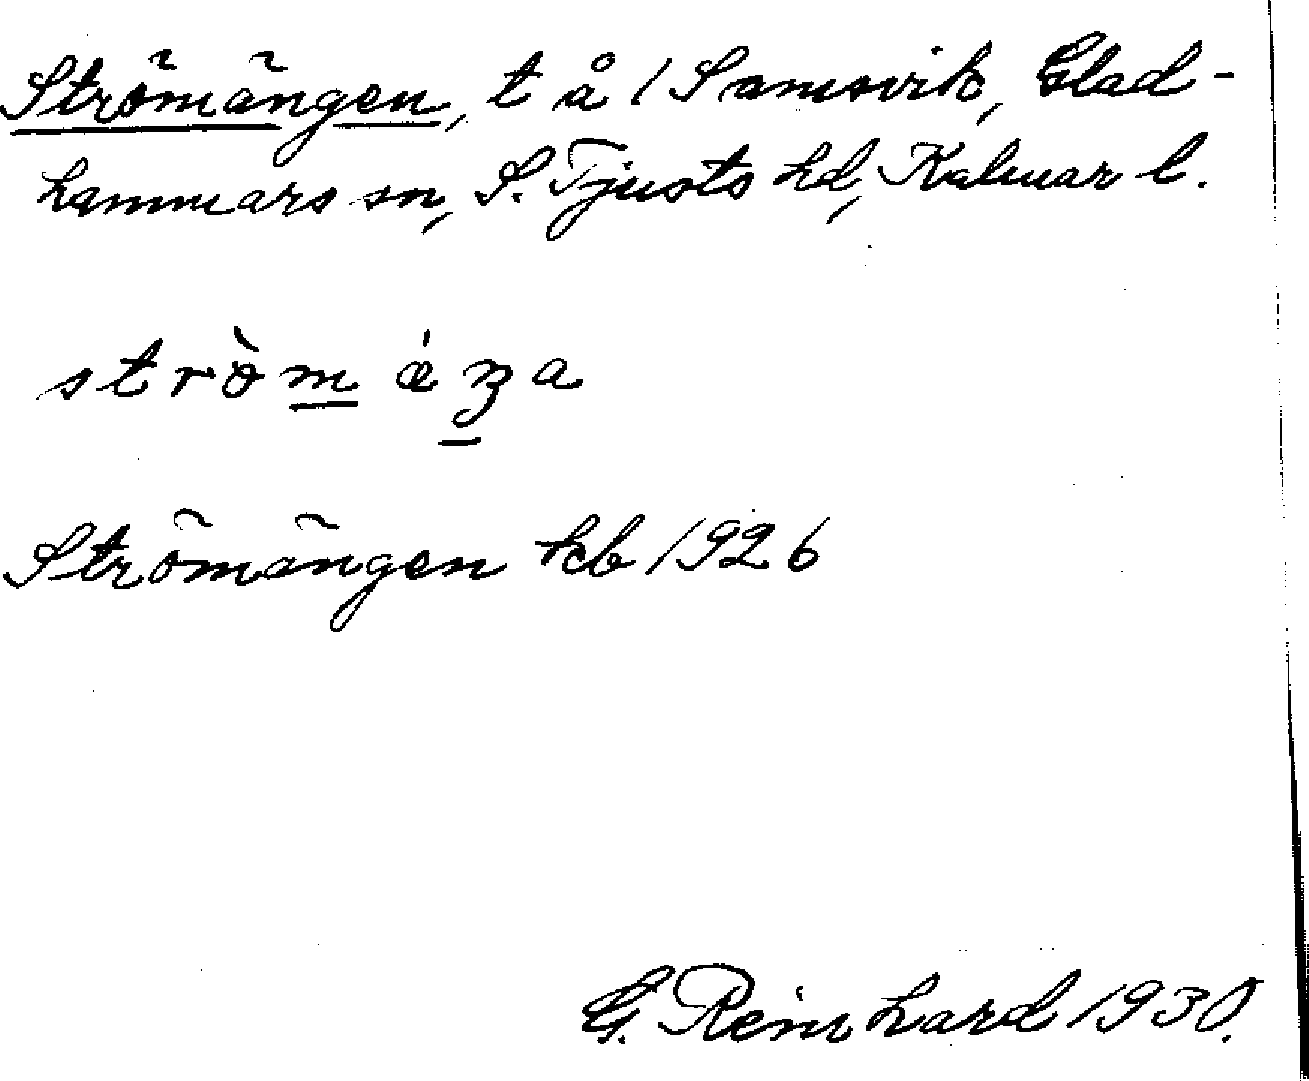 Strömängen, t å 1 Samsvik, Glad-
hammars sn, S. Tjusts hd, Kalmar l.
stròm ǽŋa
Strömängen kb 1926
G. Reinhard 1930.